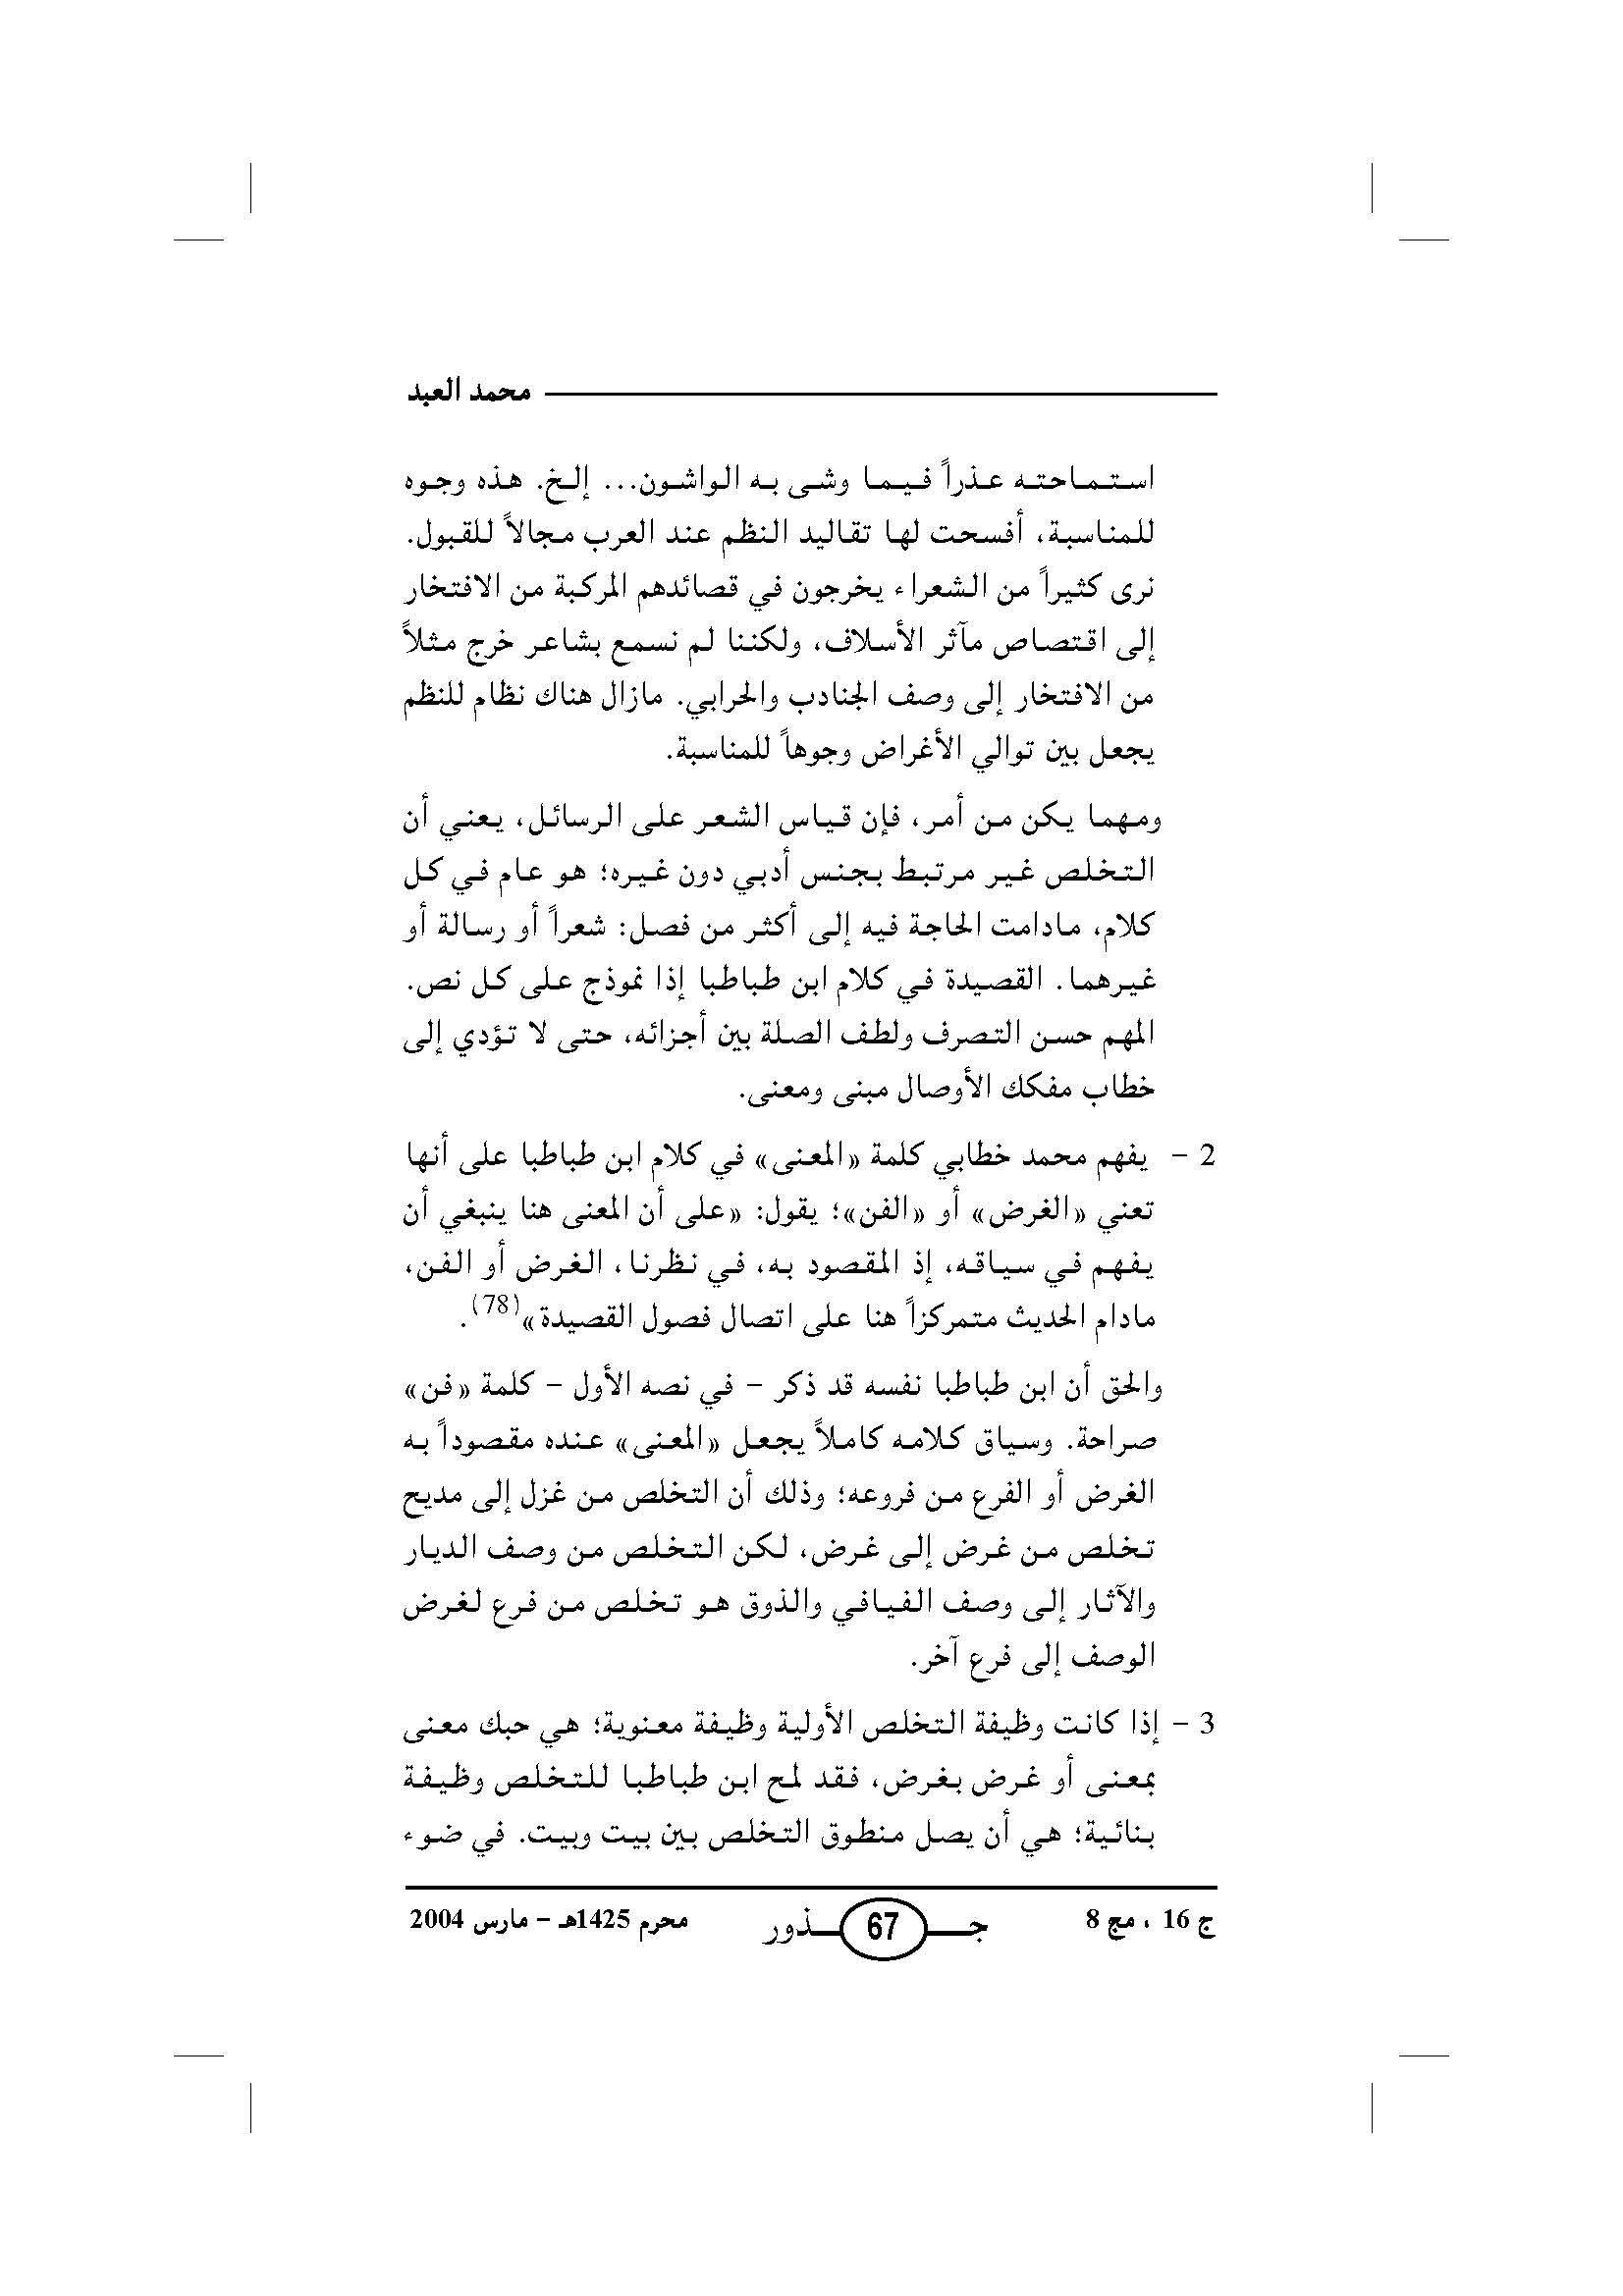 محمد العبد
استماحته عذراً فيما وشى به الواشون... إلخ. هذه وجوه
للمناسبة، أفسحت لها تقاليد النظم عند العرب مجالاً للقبول.
نرى كثيراً من الشعراء يخرجون في قصائدهم المركبة من الافتخار
إلى اقتصاص مآثر الأسلاف، ولكننا لم نسمع بشاعر خرج مثلاً
من الافتخار إلى وصف الجنادب والحرابي. مازال هناك نظام للنظم
يجعل بين توالي الأغراض وجوهاً للمناسبة.
ومهما يكن من أمر، فإن قياس الشعر على الرسائل، يعني أن
التخلص غير مرتبط بجنس أدبي دون غيره؛ هو عام في كل
كلام، مادامت الحاجة فيه إلى أكثر من فصل: شعراً أو رسالة أو
غيرهما. القصيدة في كلام ابن طباطبا إذا نموذج على كل نص.
المهم حسن التصرف ولطف الصلة بين أجزائه، حتى لا تؤدي إلى
خطاب مفكك الأوصال مبنى ومعنى.
2 - يفهم محمد خطابي كلمة «المعنى» في كلام ابن طباطبا على أنها
تعني «الغرض» أو «الفن»؛ يقول: «على أن المعنى هنا ينبغي أن
يفهم في سياقه، إذ المقصود به، في نظرنا، الغرض أو الفن،
مادام الحديث متمركزاً هنا على اتصال فصول القصيدة»(78).
والحق أن ابن طباطبا نفسه قد ذكر - في نصه الأول - كلمة «فن»
صراحة. وسياق كلامه كاملاً يجعل «المعنى» عنده مقصوداً به
الغرض أو الفرع من فروعه؛ وذلك أن التخلص من غزل إلى مديح
تخلص من غرض إلى غرض، لكن التخلص من وصف الديار
والآثار إلى وصف الفيافي والذوق هو تخلص من فرع لغرض
الوصف إلى فرع آخر.
3 - إذا كانت وظيفة التخلص الأولية وظيفة معنوية؛ هي حبك معنى
بمعنى أو غرض بغرض، فقد لمح ابن طباطبا للتخلص وظيفة
بنائية؛ هي أن يصل منطوق التخلص بين بيت وبيت. في ضوء
ج 16 ، مج 8 جـــ 67 ـــذور محرم 1425هـ - مارس 2004